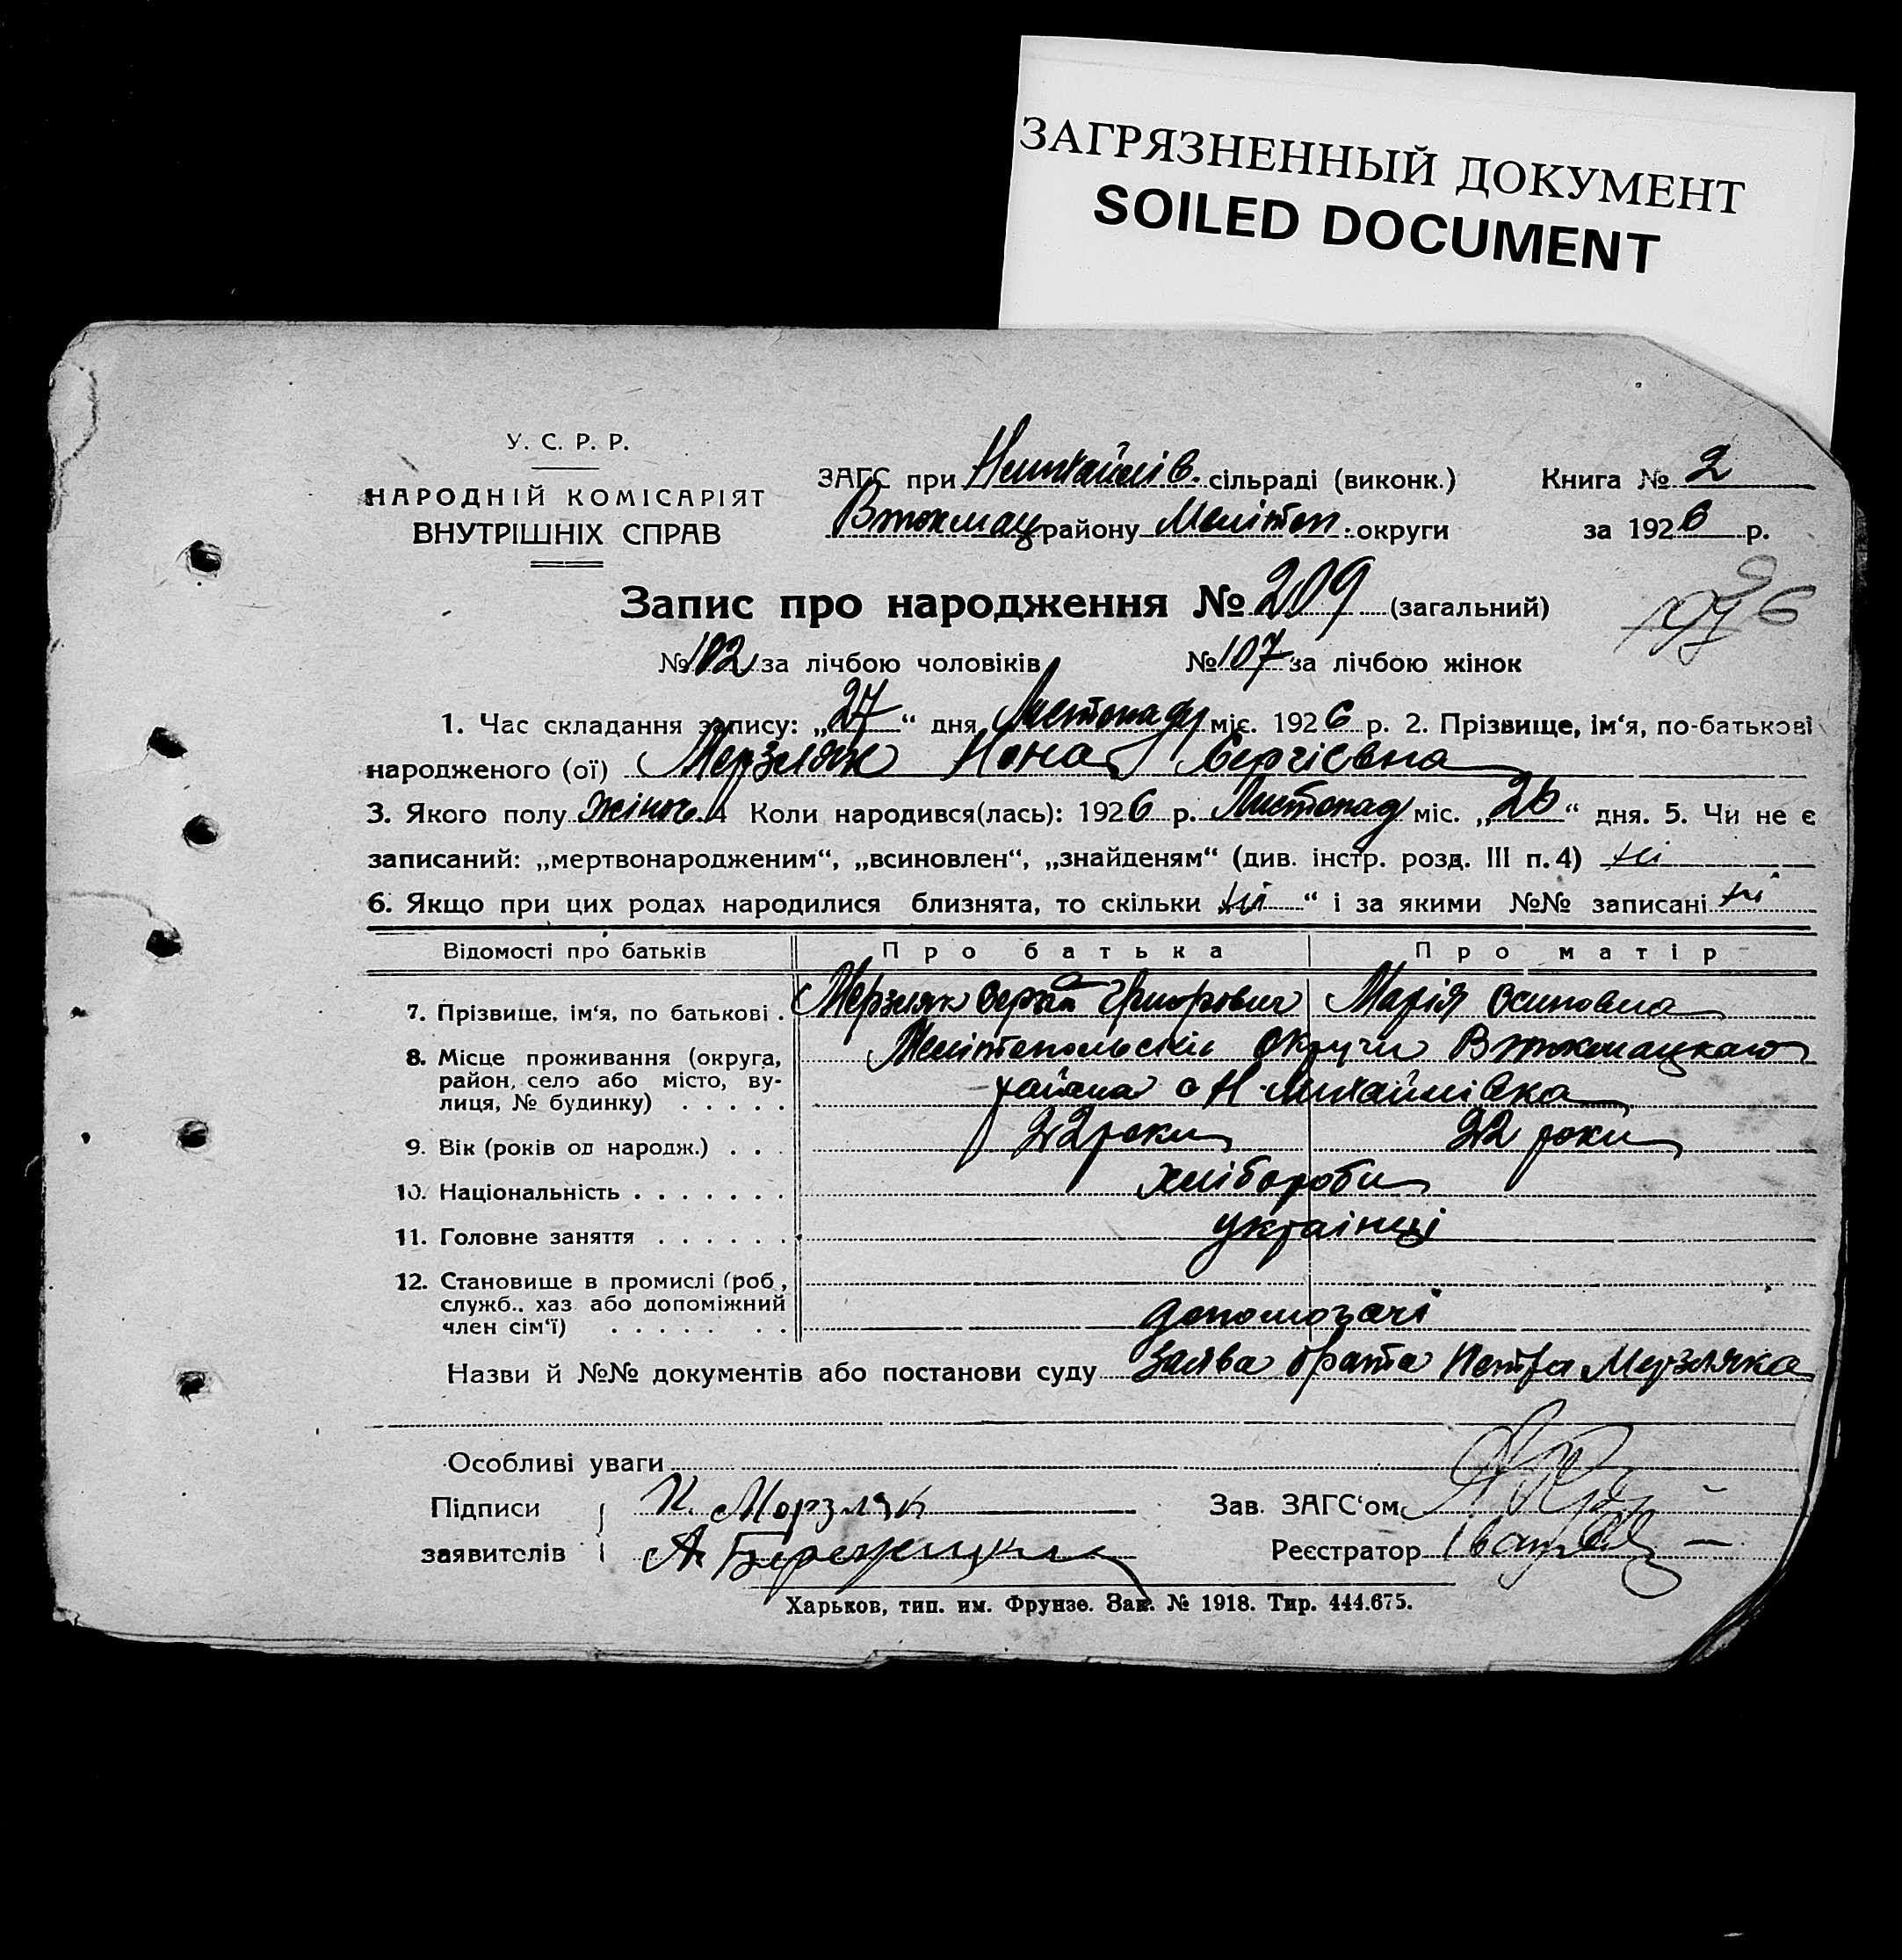 ЗАГРЯЗНЕННЫЙ ДОКУМЕНТ
SOILED DOCUMENT
У. С. Р. Р.
НАРОДНІЙ КОМІСАРІЯТ
ВНУТРІШНІХ СПРАВ
ЗАГС при Н михайлів. сільраді (виконк.)
Втокмац району Мелітоп. округи
Книга № 2
за 1926 р.
Запис про народження № 209 (загальний)
№ 102 за лічбою чоловіків № 107 за лічбою жінок
1. Час складання запису: „27“ дня Листопаду міс. 1926 р. 2. Прізвище, ім‘я, по-батькові
народженого (ої) Мерзляк Нона Сергієвна
3. Якого полу жіноч. 4 Коли народився(лась): 1926 р. Листопад міс. „26“ дня. 5. Чи не є
записаний: „мертвонародженим“, „всиновлен“, „знайденям“ (див. інстр. розд. III п. 4) ні
6. Якщо при цих родах народилися близнята, то скільки „ні“ і за якими №№ записані ні
Відомості про батьків Про батька Про матір
7. Прізвище, ім‘я, по батькові . Мерзляк Григорович Марія Осиповна
8. Місце проживання (округа, Округи Втокмацкаго
район, село або місто, ву- района с Н-Михайлівка
лиця, № будинку) . . . . .
9. Вік (років од народж.) . . . 22 роки 22 роки
10. Національність . . . . . . . хлібороби
11. Головне заняття . . . . . . українці
12. Становище в промислі (роб.,
служб., хаз або допоміжний
член сім‘ї) . . . . . . . . допомогачі
Назви й №№ документів або постанови суду Заява брата Петра Мерзляка
Особливі уваги
Підписи
заявителів
Мерзляк
Зав. ЗАГС‘ом
Реєстратор
Харьков, тип. им. Фрунзе. Зак. № 1918. Тир. 444.675.